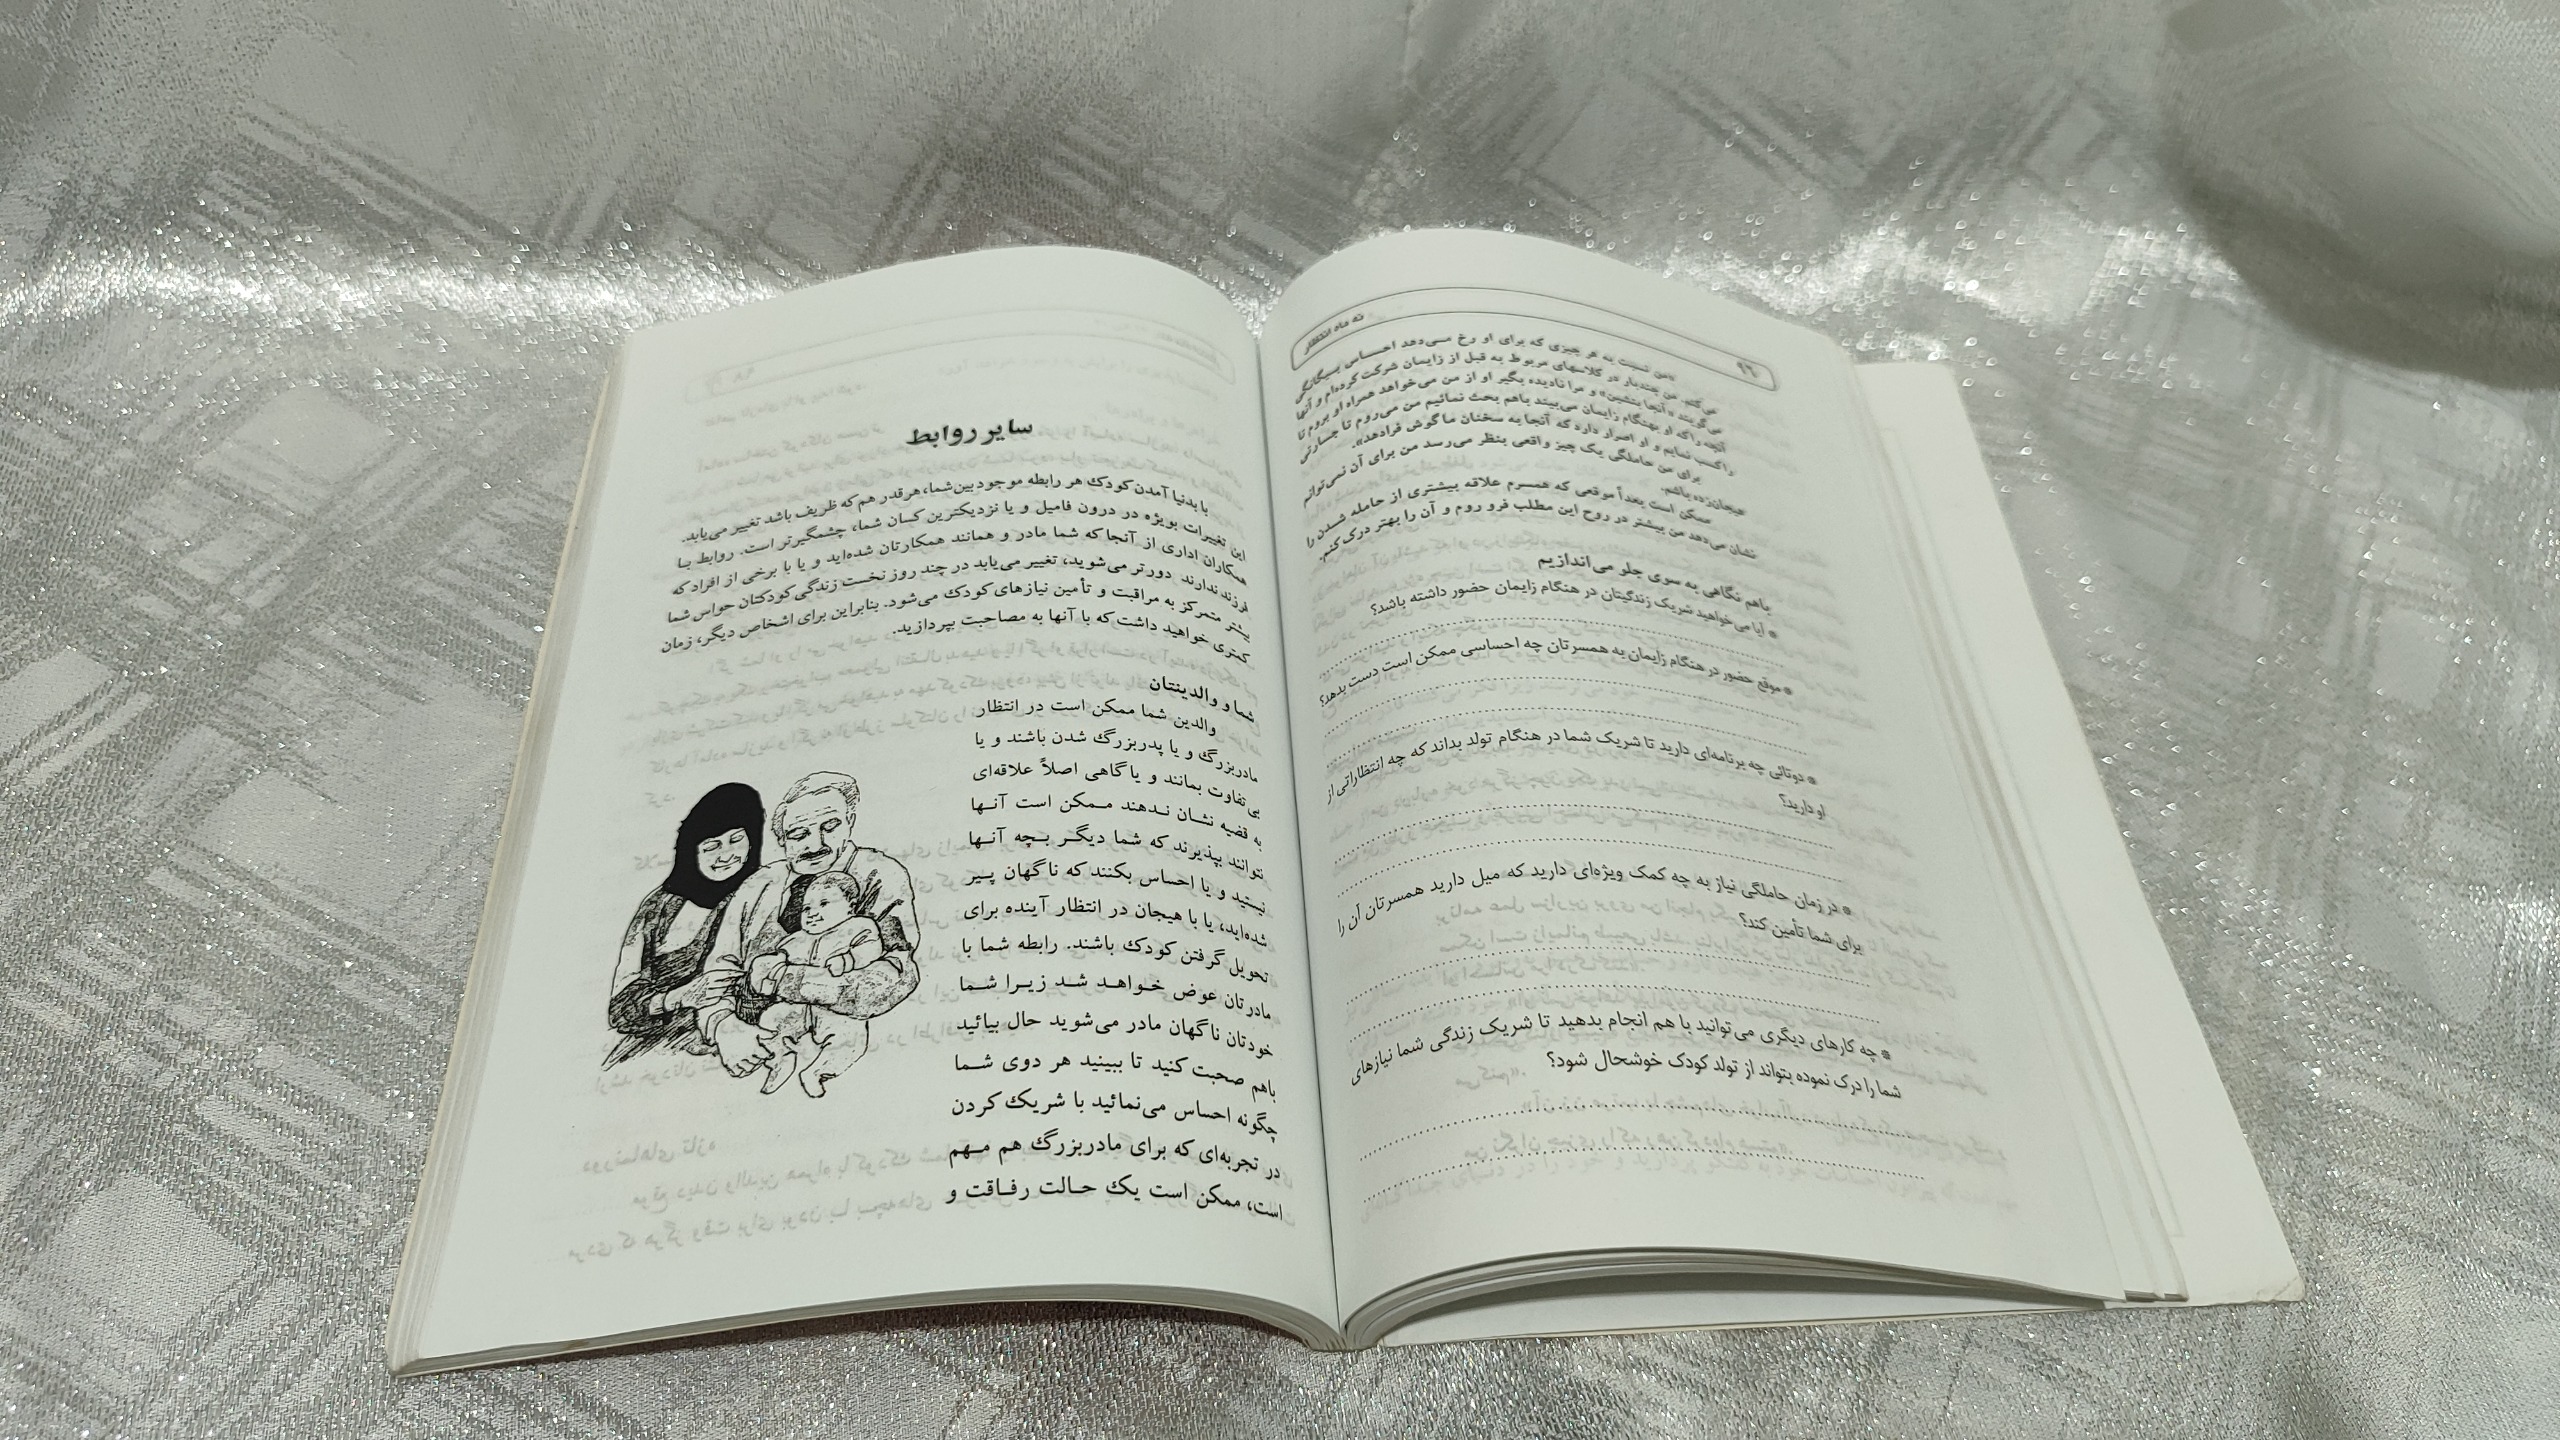 نه ماه انتظار
۹۶
«من نسبت به هر چیزی که برای او رخ می‌دهد احساس بیگانگی
می‌کنم. من چندبار در کلاسهای مربوط به قبل از زایمان شرکت کرده‌ام و آنها
می‌گویند «آنجا بنشین» و مرا نادیده بگیر او از من می‌خواهد همراه او بروم تا
آنچه را که او بهنگام زایمان می‌بیند باهم بحث نمائیم من می‌روم تا جسارتی
را کسب نمایم و او اصرار دارد که آنجا به سخنان ما گوش فرادهد».
برای من حاملگی یک چیز واقعی بنظر می‌رسد من برای آن نمی‌توانم
هیجان‌زده باشم.
ممکن است بعداً موقعی که همسرم علاقه بیشتری از حامله شدن را
نشان می‌دهد من بیشتر در روح این مطلب فرو روم و آن را بهتر درک کنم.
باهم نگاهی به سوی جلو می‌اندازیم
* آیا می‌خواهید شریک زندگیتان در هنگام زایمان حضور داشته باشد؟
* موقع حضور در هنگام زایمان به همسرتان چه احساسی ممکن است دست بدهد؟
* دوتائی چه برنامه‌ای دارید تا شریک شما در هنگام تولد بداند که چه انتظاراتی از
او دارید؟
* در زمان حاملگی نیاز به چه کمک ویژه‌ای دارید که میل دارید همسرتان آن را
برای شما تأمین کند؟
* چه کارهای دیگری می‌توانید با هم انجام بدهید تا شریک زندگی شما نیازهای
شما را درک نموده بتواند از تولد کودک خوشحال شود؟
سایر روابط
با بدنیا آمدن کودک هر رابطه موجود بین شما، هر قدر هم که ظریف باشد تغییر می‌یابد.
این تغییرات بویژه در درون فامیل و یا نزدیکترین کسان شما، چشمگیرتر است. روابط با
همکاران اداری از آنجا که شما مادر و همانند همکارتان شده‌اید و یا با برخی از افراد که
فرزند ندارند دورتر می‌شوید، تغییر می‌یابد در چند روز نخست زندگی کودکتان حواس شما
بیشتر متمرکز به مراقبت و تأمین نیازهای کودک می‌شود. بنابراین برای اشخاص دیگر، زمان
کمتری خواهید داشت که با آنها به مصاحبت بپردازید.
شما و والدینتان
والدین شما ممکن است در انتظار
مادربزرگ و یا پدربزرگ شدن باشند و یا
بی‌تفاوت بمانند و یا گاهی اصلاً علاقه‌ای
به قضیه نشان ندهند ممکن است آنها
نتوانند بپذیرند که شما دیگر بچه آنها
نیستید و یا احساس بکنند که ناگهان پیر
شده‌اید، یا با هیجان در انتظار آینده برای
تحویل گرفتن کودک باشند. رابطه شما با
مادرتان عوض خواهد شد زیرا شما
خودتان ناگهان مادر می‌شوید حال بیائید
باهم صحبت کنید تا ببینید هر دوی شما
چگونه احساس می‌نمائید با شریک کردن
در تجربه‌ای که برای مادربزرگ هم مهم
است، ممکن است یک حالت رفاقت و